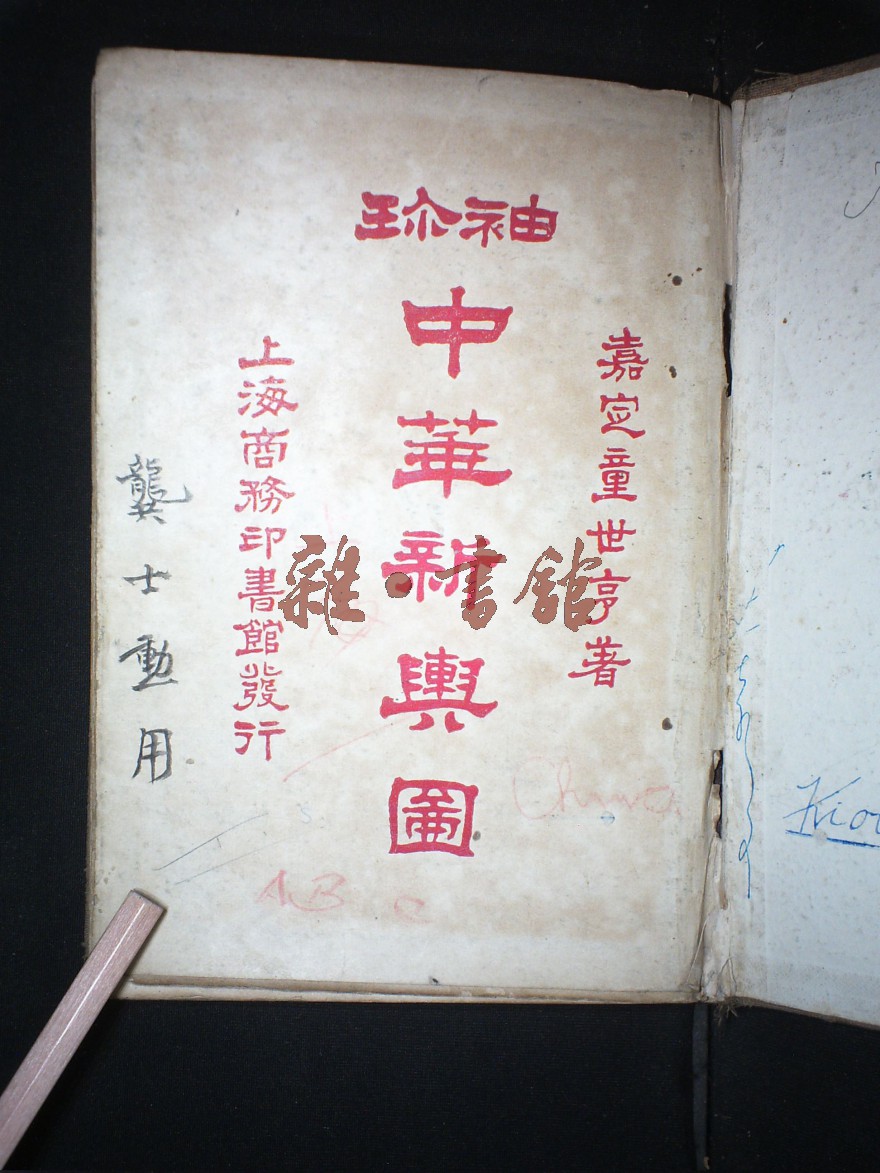 袖珎
嘉定童世亨著
中華新輿圖
上海商務印書館發行
龔士勳用
雜·書館
China
ABC